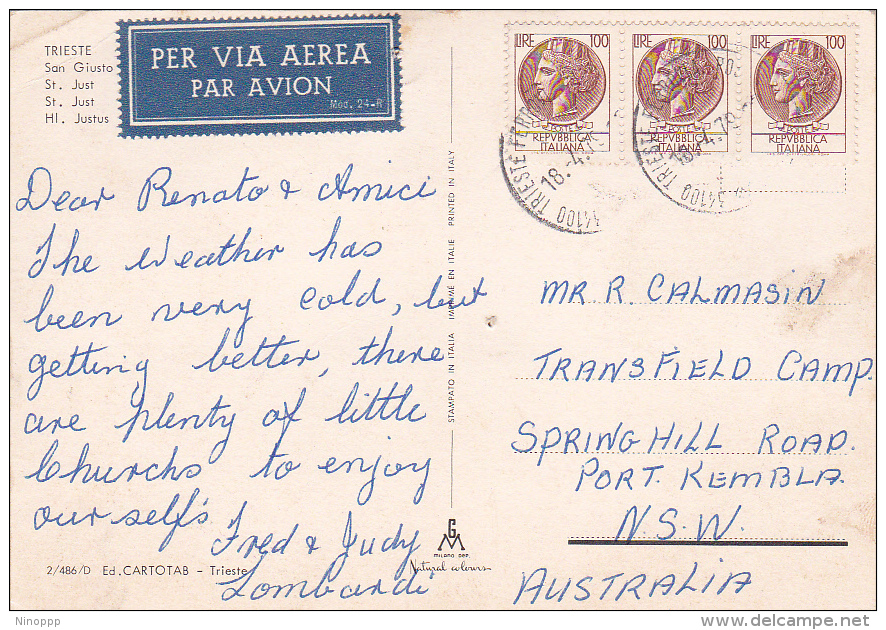 TRIESTE
San Giusto
St. Just
St. Just
Hl. Justus
PER VIA AEREA
PAR AVION
Mod. 24-R
Dear Renato & Amici
The Weather has
been very cold, but
getting better, there
are plenty of little
Churchs to enjoy
our self's
Fred & Judy
Lombardi
2/486/D Ed. CARTOTAB - Trieste
STAMPATO IN ITALIA IMPRIMÉ EN ITALIE PRINTED IN ITALY
GM
MILANO DEP.
Natural colours
LIRE 100
POSTE
REPVBBLICA
ITALIANA
LIRE 100
POSTE
REPVBBLICA
ITALIANA
LIRE 100
POSTE
REPVBBLICA
ITALIANA
34100 TRIESTE FERR
18.-4.
34100 TRIESTE
18.-4.70
MR R. CALMASIN
TRANSFIELD CAMP.
SPRINGHILL ROAD.
PORT. KEMBLA.
N.S.W.
AUSTRALIA
Ninoppp
delcampe.net